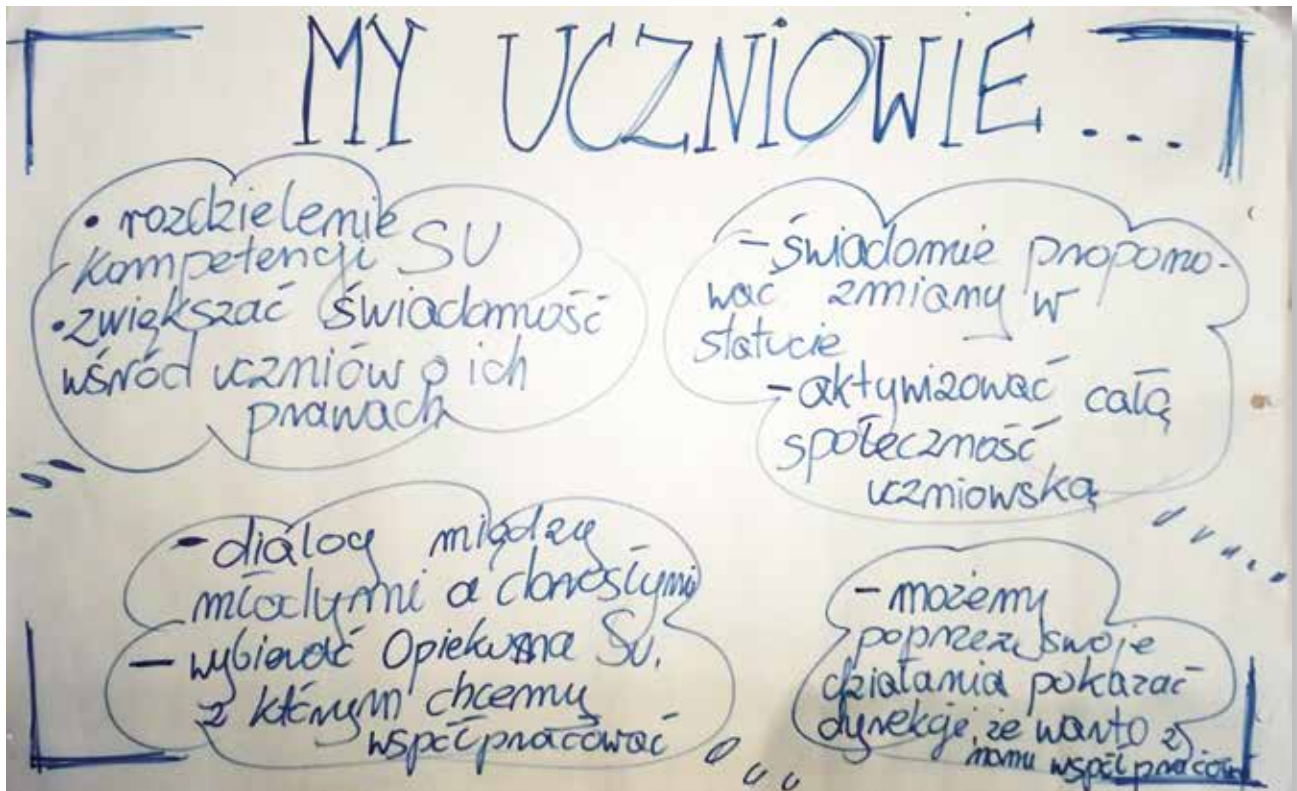 MY UCZNIOWIE...
• rozdzielenie
kompetencji SU
• zwiększać świadomość
wśród uczniów o ich
prawach
- świadomie propono-
wać zmiany w
statucie
- aktywizować całą
społeczność
uczniowską
- dialog między
młodymi a dorosłymi
- wybierać Opiekuna SU,
z którym chcemy
współpracować
- możemy
poprzez swoje
działania pokazać
dyrekcje, że warto z
nami współpracować